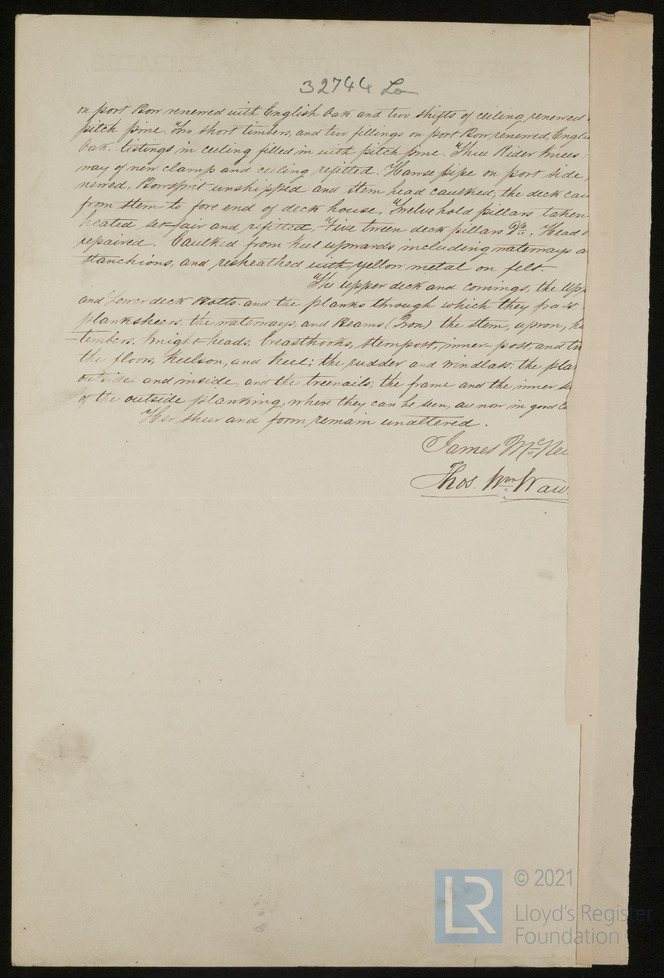 32744 Lon
on port Bow renewed with English Oak and two shifts of ceiling renewed
pitch pine. Two short timbers, and two fillings on port Bow renewed, Englis
Oak. listings in ceiling filled in with pitch pine. Three Rider Knees
way of new clamp and ceiling refitted. Hawse pipe on port side,
newed, Bowsprit unshipped and stem head caulked, the deck cau
from Stem to fore end of deck house, Twelve hold pillars taken
heated set fair and refitted, Five tween deck pillars Do., Head
repaired. Caulked from keel upwards including waterways a
stanchions, and resheathed with yellow metal on felt.
The upper deck and comings, the Upp
and Lower deck Bolts and the planks through which they pass
planksheers, the waterways, and Beams (Iron) the stem, apron,
timbers, knight-heads, breasthooks, sternpost, inner post, and tra
the floors, Keelson, and Keel; the rudder and windlass; the pla
outside and inside, and the treenails; the frame and the inner s
of the outside planking, where they can be seen, are now in good co
Her sheer and form, remain unaltered.
James McNei
Thos. Wm. Waw
© 2021
LR
Lloyd's Register
Foundation